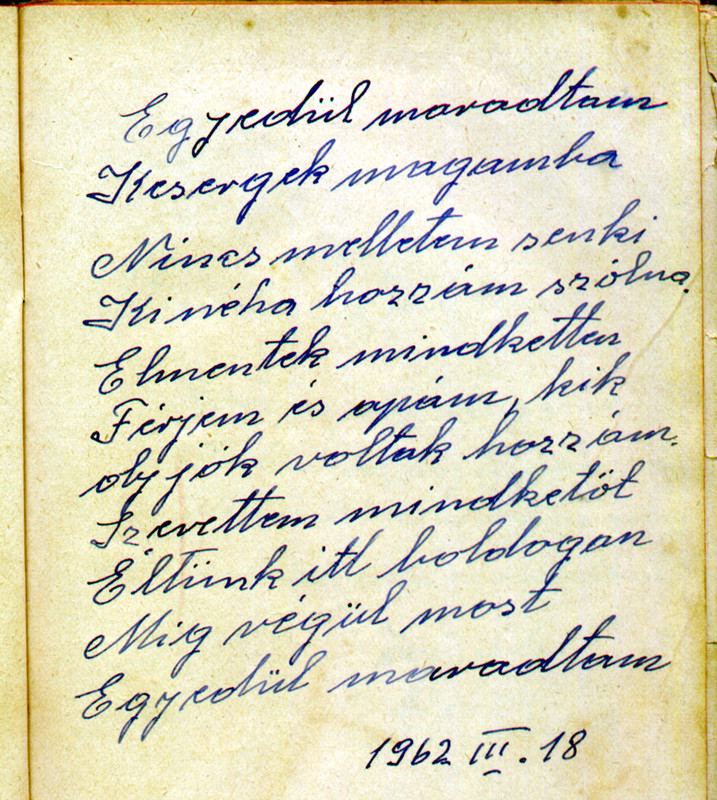 Egyedül maradtam
Kesergek magamba
Nincs melletem senki
Ki néha hozzám szólna.
Elmentek mindketten
Férjem és apám, kik
oly jók voltak hozzám.
Szerettem mindketöt
Éltünk itt boldogan
Mig végül most
Egyedül maradtam
1962 III. 18